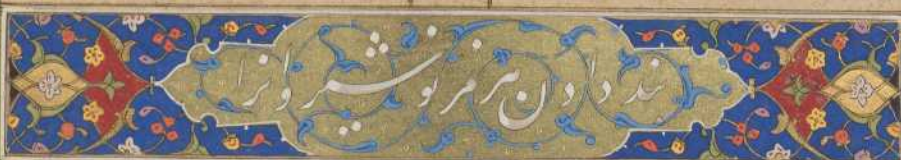 پند دادن هرمز نوشیروانرا